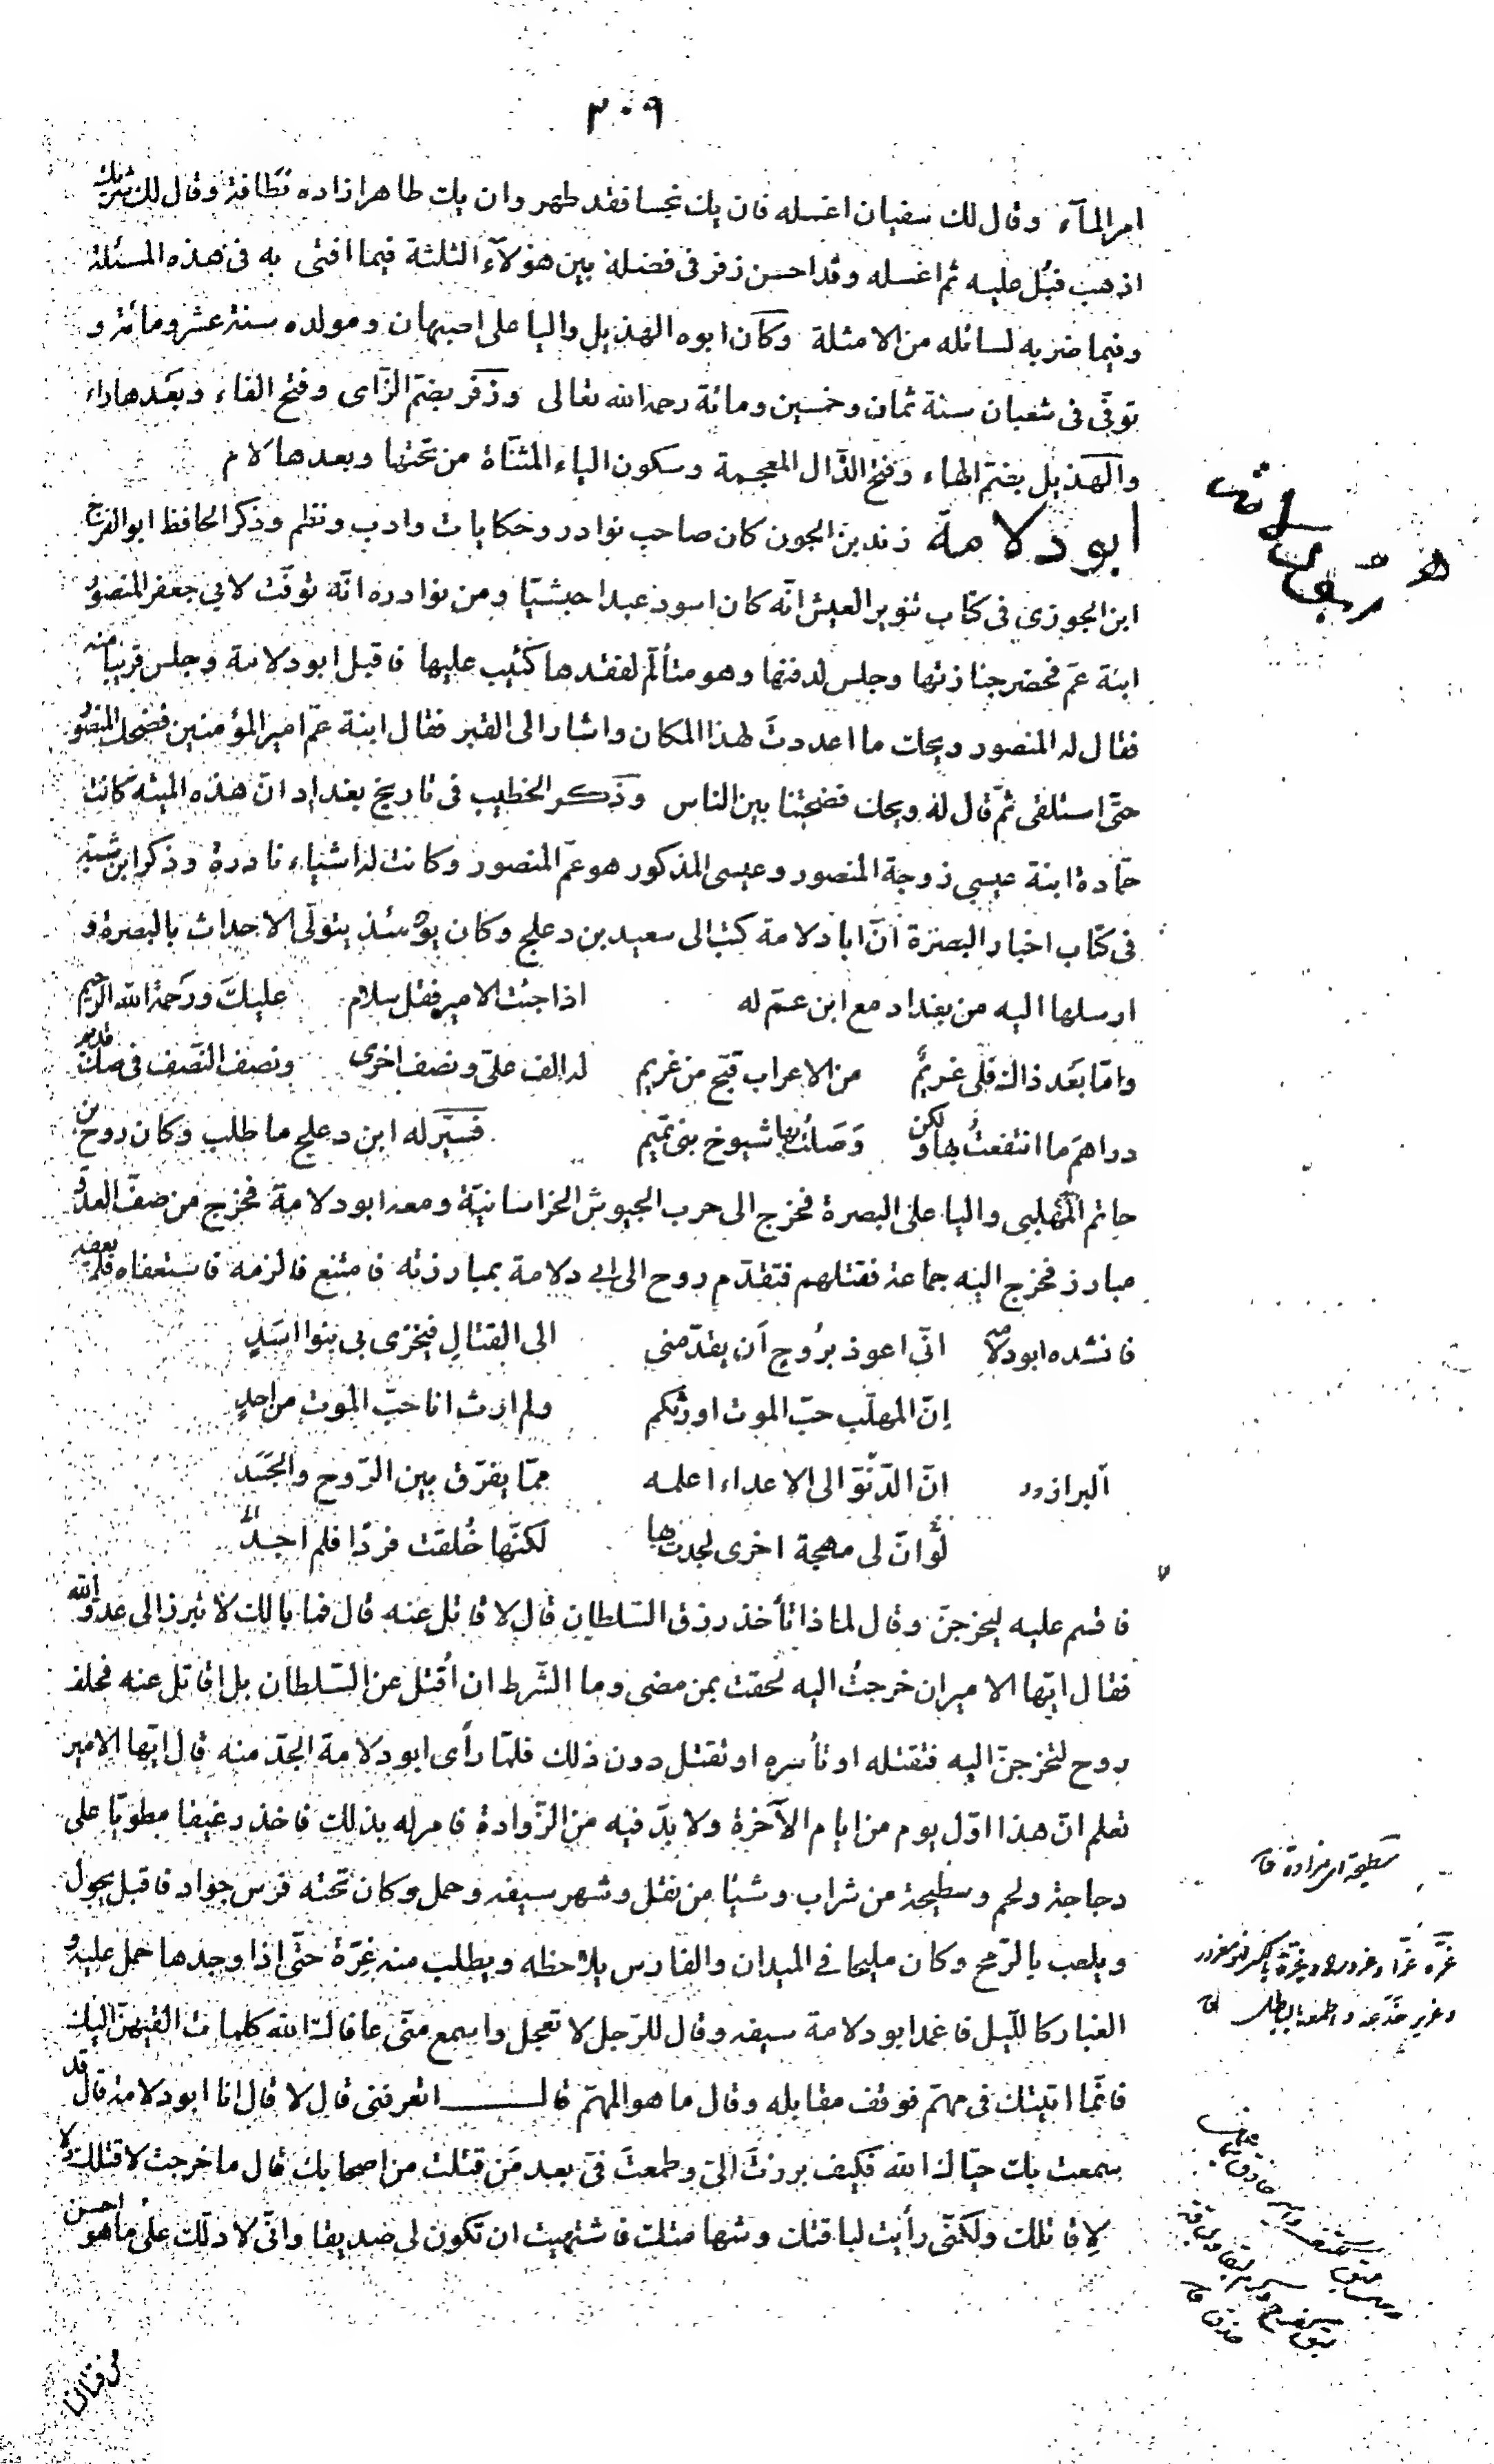 ٢٠٩
امر المآء وقال لك سفيان اغسله فان يك نجسا فقد طهر وان يك طاهرا زاده نظافة وقال لك شريك
اذهب فبُل عليه ثم اغسله وقد احسن زفر فى فصله بين هؤلآء الثلثة فيما افتى به فى هذه المسئلة
وفيما ضربه لسائله من الامثلة وكان ابوه الهذيل واليا على اصبهان ومولده سنة عشر ومائة و
توفّى فى شعبان سنة ثمان وخمسين ومائة رحمه الله تعالى وزفر بضمّ الزّاى وفتح الفاء وبعدها راء
والهذيل بضمّ الهاء وفتح الذّال المعجمة وسكون الياء المثنّاة من تحتها وبعدها لام
ابو دلامة زند بن الجون كان صاحب نوادر وحكايات وادب ونظم وذكر الحافظ ابو الفرج
ابن الجوزى فى كتاب تنوير الغبش انّه كان اسود عبدا حبشيّا ومن نوادره انّه توفّت لابى جعفر المنصور
ابنة عمّ فحضر جنازتها وجلس لدفنها وهو متألّم لفقدها كئيب عليها فاقبل ابو دلامة وجلس قريبا منه
فقال له المنصور ويحك ما اعددتَ لهذا المكان واشار الى القبر فقال ابنة عمّ امير المؤمنين فضحك المنصور
حتّى استلقى ثمّ قال له ويحك فضحتنا بين الناس وذكر الخطيب فى تاريخ بغداد انّ هذه الميتة كانت
حمّادة ابنة عيسى زوجة المنصور وعيسى المذكور هو عمّ المنصور وكانت له اشياء نادرة وذكر ابن شبّة
فى كتاب اخبار البصرة انّ ابا دلامة كتب الى سعيد بن دعلج وكان يومئذ يتولّى الاحداث بالبصرة و
ارسلها اليه من بغداد مع ابن عمّ له اذا جئت الامير فقل سلام عليك ورحمة الله الرحيم
وامّا بعد ذاك فلى غريمٌ من الاعراب قبّح من غريم له الف علىّ ونصف اخرى ونصف النّصف فى صكّ قديم
دراهمَ ما انتفعتُ بها ولكن وَصَلتُ بها شيوخ بنى تميم فسيّر له ابن دعلج ما طلب وكان روح بن
حاتم المهلّبى واليا على البصرة فخرج الى حرب الجيوش الخراسانيّة ومعه ابو دلامة فخرج من صفّ العدوّ
مبارز فخرج اليه جماعة فقتلهم فتقدّم روح الى ابى دلامة بمبارزته فامتنع فالزمه فاستعفاه فلم يعفه
فانشده ابو دلامة انّى اعوذ برُوحٍ اَن يقدّمنى الى القتالِ فيخزى بى بنوا اسَدٍ
اِنّ المهلّب حبّ الموت اورثكم ولم ارث انا حبّ الموت من احدٍ
انّ الدّنوّ الى الاعداء اعلمه ممّا يفرّق بين الرّوح والجسَد
لو انّ لى مهجة اخرى لجدت بها لكنّها خُلقت فردًا فلم اجد
فاقسم عليه ليخرجنّ وقال لماذا تأخذ رزق السّلطان قال لاقاتل عنه قال فما بالك لا تبرز الى عدوّ الله
فقال ايّها الامير ان خرجتُ اليه لحقت بمن مضى وما الشّرط ان اُقتل عن السّلطان بل اقاتل عنه فحلف
روح لتخرجنّ اليه فتقتله او تأسره او تقتل دون ذلك فلمّا رأى ابو دلامة الجدّ منه قال ايّها الامير
تعلم انّ هذا اوّل يوم من ايام الآخرة ولا بدّ فيه من الزّوادة فامر له بذلك فاخذ رغيفا مطويّا على
دجاجة ولحم وسطيحة من شراب وشيئا من نقل وشهر سيفه وحمل وكان تحته فرس جواد فاقبل يجول
ويلعب بالرّمح وكان مليحا فى الميدان والفارس يلاحظه ويطلب منه غِرّة حتّى اذا وجدها حمل عليه و
الغبار كاللّيل فاغمد ابو دلامة سيفه وقال للرّجل لا تعجل واسمع منّى عافاك الله كلمات القيهنّ اليك
فانّما اتيتك فى مهمّ فوقف مقابله وقال ما هو المهمّ قال اتعرفنى قال لا قال انا ابو دلامة قال قد
سمعت بك حيّاك الله فكيف برزتَ الىّ وطمعتَ فىّ بعد مَن قتلت من اصحابك قال ما خرجت لاقتلك ولا
لاِقاتلك ولكنّى رأيت لباقتك وشهامتك فاشتهيت ان تكون لى صديقا وانّى لادلّك على ما هو احسن
من قتالنا
سطيحة